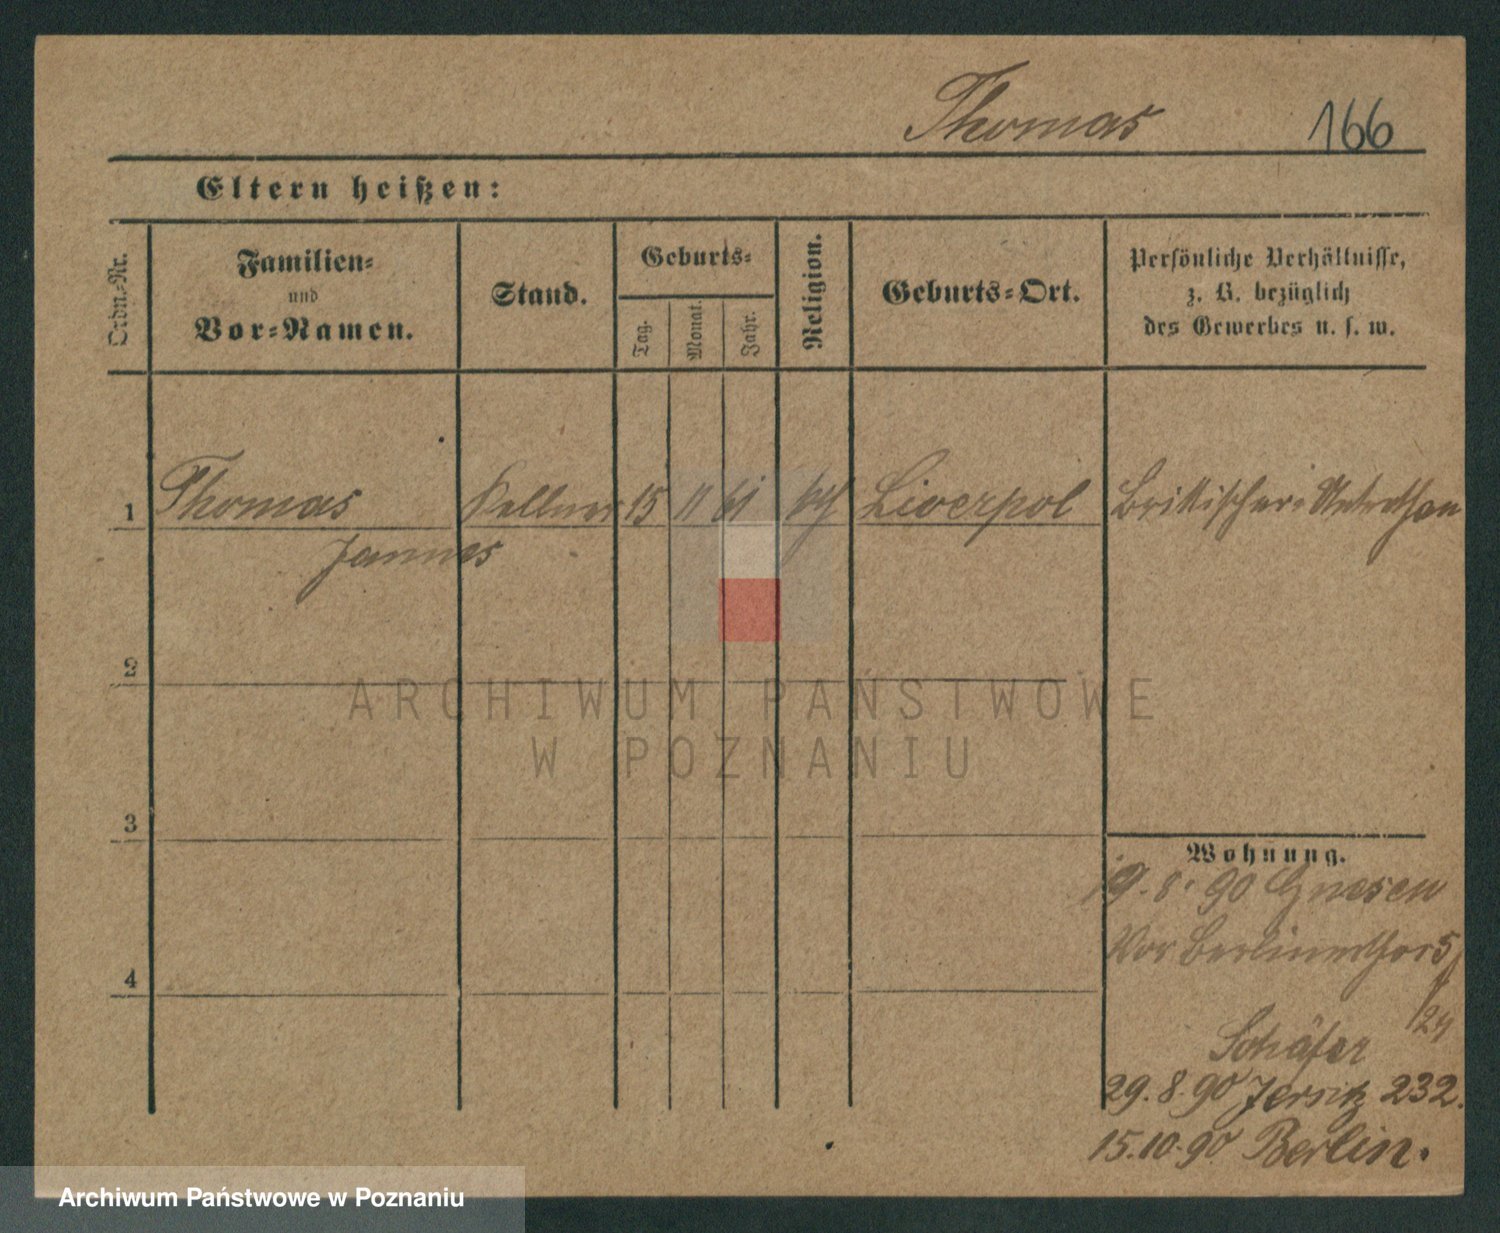 Thomas 166
Eltern heißen:
Ordn.-Nr.
Familien-
und
Vor-Namen.
Stand.
Geburts-
Tag.
Monat.
Jahr.
Religion.
Geburts-Ort.
Persönliche Verhältnisse,
z. B. bezüglich
des Gewerbes u. s. w.
1 Thomas Kellner 15 11 61 Liverpol Brittischer Unterthan
Jammes
2
ARCHIWUM PAŃSTWOWE
W POZNANIU
3
Wohnung.
19.8.90 Gnesen
Vor Berlinerthor 5
4
Schäfer
29.8.90 Jersitz 232.
15.10.90 Berlin.
Archiwum Państwowe w Poznaniu